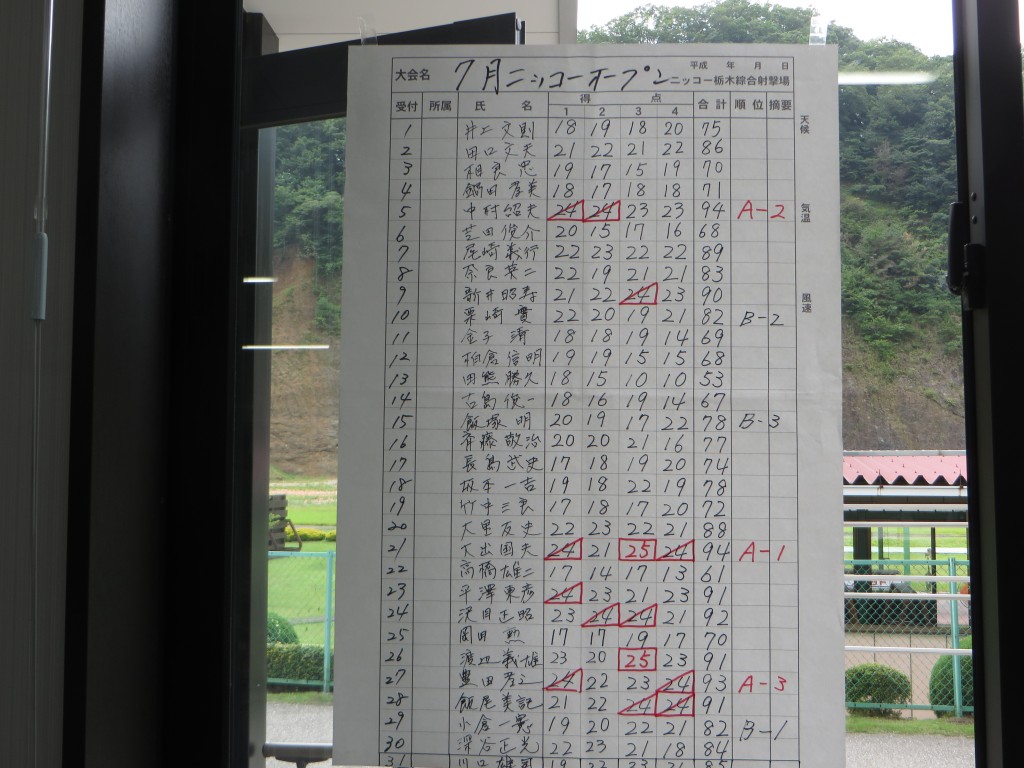 平成 年 月 日
大会名 7月ニッコーオープン ニッコー栃木綜合射撃場
受付 所属 氏 名 得 点 合計 順位 摘要
1 2 3 4
天候
気温
風速
1 井上文則 18 19 18 20 75
2 田口文夫 21 22 21 22 86
3 相良忠 19 17 15 19 70
4 鍋田孝美 18 17 18 18 71
5 中村昭夫 24 24 23 23 94 A-2
6 芝田俊介 20 15 17 16 68
7 尾崎義行 22 23 22 22 89
8 奈良英二 22 19 21 21 83
9 新井昭寿 21 22 24 23 90
10 栗崎實 22 20 19 21 82 B-2
11 金子清 18 18 19 14 69
12 柏倉信明 19 19 15 15 68
13 田熊勝久 18 15 10 10 53
14 古島俊一 18 16 19 14 67
15 飯塚明 20 19 17 22 78 B-3
16 斉藤敬治 20 20 21 16 77
17 長島武史 17 18 19 20 74
18 坂本一吉 19 18 22 19 78
19 竹中三良 17 18 17 20 72
20 大里友史 22 23 22 21 88
21 大出国夫 24 21 25 24 94 A-1
22 高橋雄二 17 14 17 13 61
23 平澤東彦 24 23 21 23 91
24 沢目正昭 23 24 24 21 92
25 岡田勲 17 17 19 17 70
26 渡辺義雄 23 20 25 23 91
27 豊田芳之 24 22 23 24 93 A-3
28 飯尾美記 21 22 24 24 91
29 小倉一憲 19 20 22 21 82 B-1
30 深谷正光 22 23 21 18 84
31 川口雄司 19 22 23 21 85